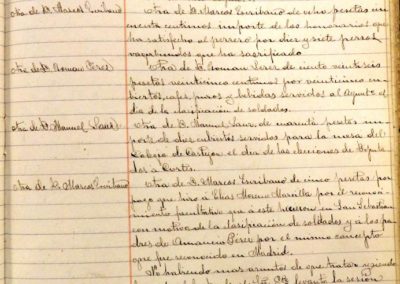 Otra de D. Marcos Turibano
Otra de D. Marcos Turibano de ocho pesetas cin
cuenta centimos importe de los honorarios que
ha satisfecho al perrero por diez y siete perros
vagabundos que ha sacrificado.
Otra de D. Roman Perez
Otra de D. Roman Perez de ciento veintiseis
pesetas veinticinco centimos por veinticinco cu
biertos, cafes, puros y bebidas servidos al Aguntº el
dia de la clasificacion de soldados.
Otra de D. Manuel Sanz
Otra de D. Manuel Sanz, de cuarenta pesetas im
porte de diez cubiertos servidos para la mesa del
Colegio de Castejon el dia de las elecciones de Diputa
dos a Cortes.
Otra de D. Marcos Turibano
Otra de D. Marcos Turibano de cinco pesetas por
pago que hizo á Elias Moreno por el reconoci
miento facultativo que á este hicieron en San Sebastian
con motivo de la clasificacion de soldados y á los pa
dres de Amancio Perez por el mismo concepto
que fue reconocido en Madrid.
No habiendo mas asuntos de que tratar y siendo
levantó la sesión